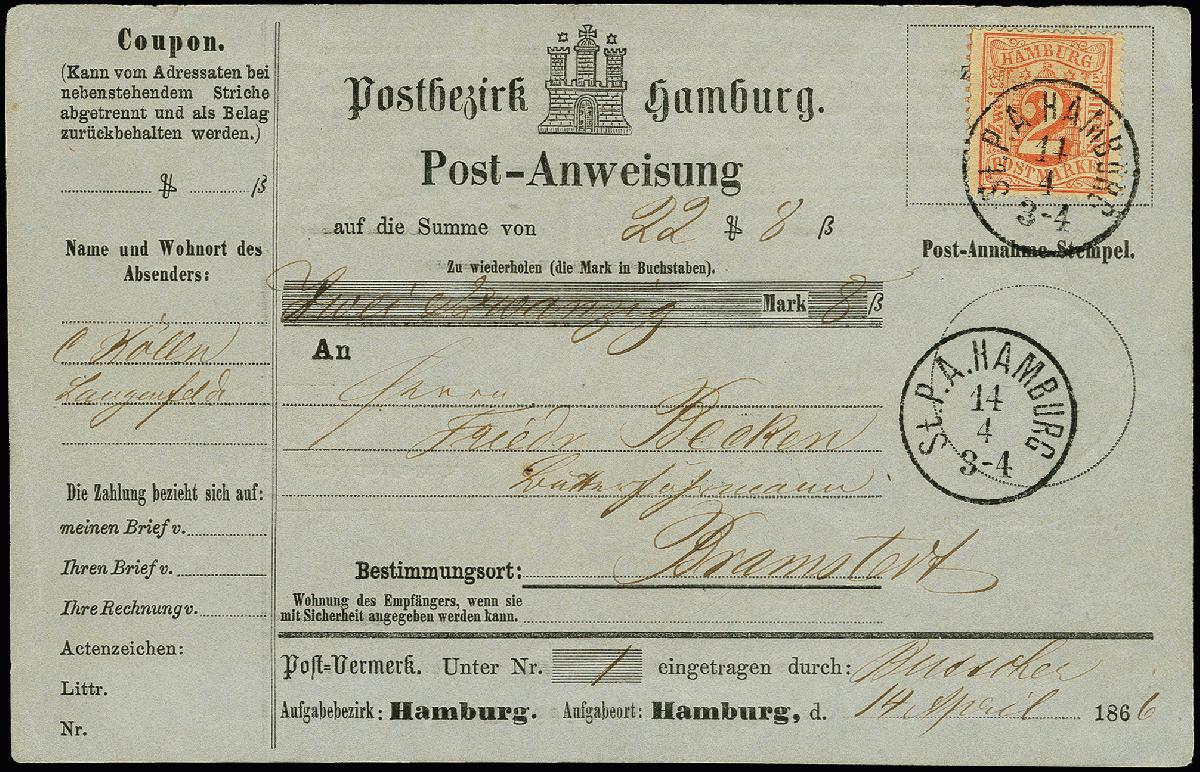 Coupon.
(Kann vom Adressaten bei
nebenstehendem Striche
abgetrennt und als Belag
zurückbehalten werden.)
ß
Name und Wohnort des
Absenders:
C Kölln
Langenfelde
Die Zahlung bezieht sich auf:
meinen Brief v.
Ihren Brief v.
Ihre Rechnung v.
Actenzeichen:
Littr.
Nr.
Postbezirk Hamburg.
Post-Anweisung
auf die Summe von 22 8 ß
Zu wiederholen (die Mark in Buchstaben).
Zwei & zwanzig Mark 8 ß
An
Herrn
Friedr Becken
Butterfuhrmann
Bramstedt
Bestimmungsort:
Wohnung des Empfängers, wenn sie
mit Sicherheit angegeben werden kann.
Post-Vermerk. Unter Nr. 1 eingetragen durch:
Aufgabebezirk: Hamburg. Aufgabeort: Hamburg, d. 14 April 1866
HAMBURG
2
POSTMARKE
St.P.A.HAMBURG
14
4
3-4
Post-Annahme-Stempel.
St.P.A.HAMBURG
14
4
3-4